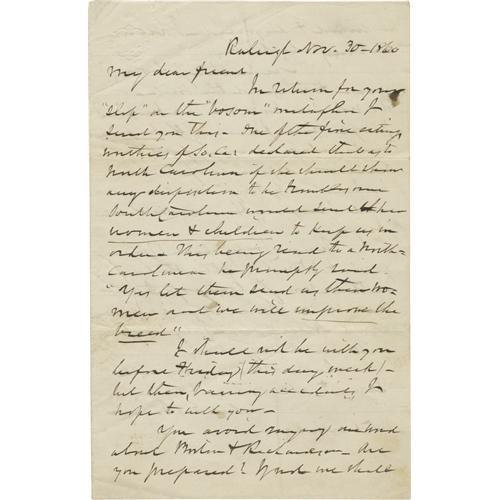 Raleigh Nov. 30 - 1860
My dear friend
In return for your
"slip" on the "bosom" metaphor I
send you this - One of the fire eating
worthies of So. Ca. declared that as to
North Carolina if she should show
any disposition to be troublesome
South Carolina would send her
women & children to keep us in
order - This being read to a North-
Carolinian he promptly said
"Yes let them send us their wo-
men and we will improve the
breed"
I shall not be with you
before Friday (this day week) -
but then, barring accidents, I
hope to with you -
You avoid saying one word
about & Richardson - Are
you prepared? we shall